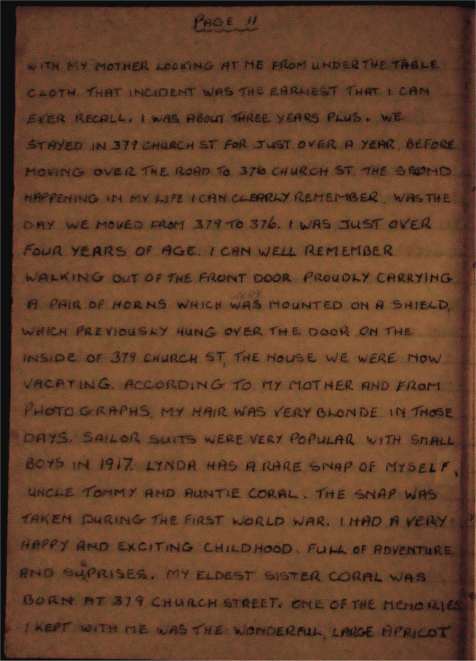 PAGE 11
WITH MY MOTHER LOOKING AT ME FROM UNDER THE TABLE
CLOTH. THAT INCIDENT WAS THE EARLIEST THAT I CAN
EVER RECALL. I WAS ABOUT THREE YEARS PLUS. WE
STAYED IN 379 CHURCH ST FOR JUST OVER A YEAR, BEFORE
MOVING OVER THE ROAD TO 376 CHURCH ST. THE SECOND
HAPPENING IN MY LIFE I CAN CLEARLY REMEMBER, WAS THE
DAY WE MOVED FROM 379 TO 376. I WAS JUST OVER
FOUR YEARS OF AGE. I CAN WELL REMEMBER
WALKING OUT OF THE FRONT DOOR PROUDLY CARRYING
A PAIR OF HORNS WHICH WAS MOUNTED ON A SHIELD,
WHICH PREVIOUSLY HUNG OVER THE DOOR ON THE
INSIDE OF 379 CHURCH ST, THE HOUSE WE WERE NOW
VACATING. ACCORDING TO MY MOTHER AND FROM
PHOTOGRAPHS, MY HAIR WAS VERY BLONDE IN THOSE
DAYS. SAILOR SUITS WERE VERY POPULAR WITH SMALL
BOYS IN 1917. LYNDA HAS A RARE SNAP OF MYSELF,
UNCLE TOMMY AND AUNTIE CORAL. THE SNAP WAS
TAKEN DURING THE FIRST WORLD WAR. I HAD A VERY
HAPPY AND EXCITING CHILDHOOD. FULL OF ADVENTURE
AND SUPRISES. MY ELDEST SISTER CORAL WAS
BORN AT 379 CHURCH STREET. ONE OF THE MEMORIES
I KEPT WITH ME WAS THE WONDERFUL, LARGE APRICOT